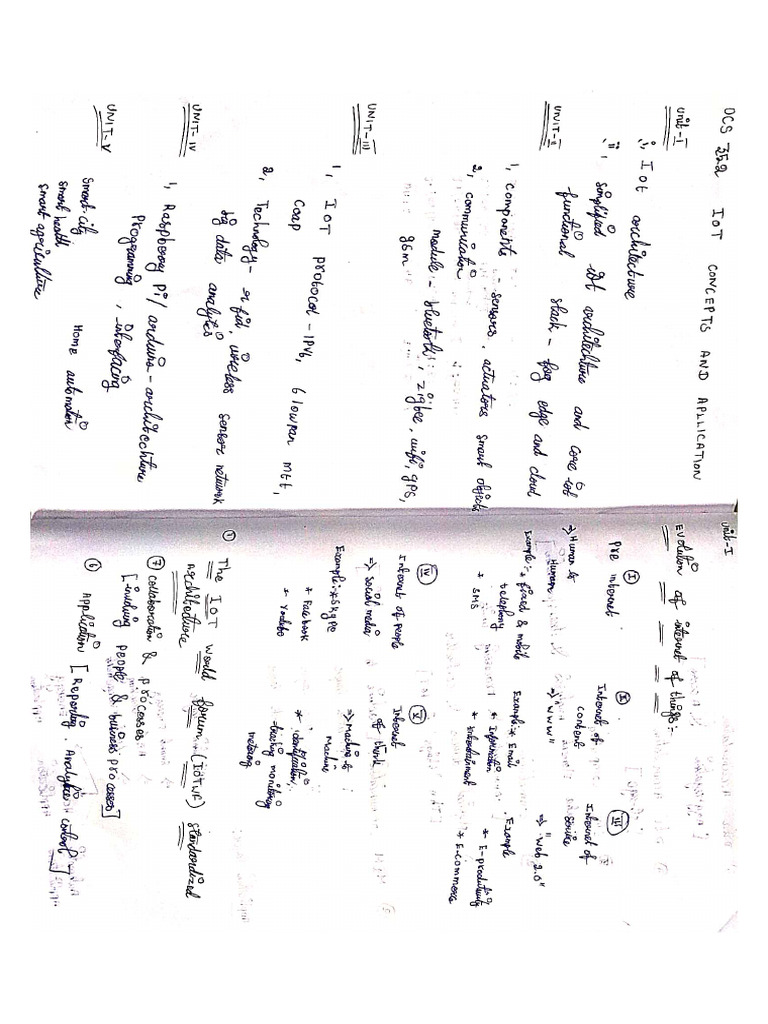 OCS 352 IOT CONCEPTS AND APLLICATION
Unit-I
i, Iot architecture
ii, simplified iot architechture and core iot
functional stack - fog edge and cloud
UNIT-II
1, components - sensors, actuators smart objects
2, communication
module - bluetooth, zigbee, wifi, gps,
gsm
UNIT-III
1, IOT protocol - IPV6, 6lowpan mtt,
Coap
2, Technology - rfid, wireless sensor network
big data analytics
UNIT-IV
1, Raspberry Pi/ arduino - architechture
Programming, interfacing
UNIT-V
smart-city
smart health
smart agriculture
Home automation
Unit-I
Evolution of internet of things:-
I
Pre internet
=> Human to
Human
Example:- * fixed & mobile
telephony
* SMS
II
Internet of
content
=> "www"
Example:- * Email
* Information
* Entertainment
III
Internet of
service
=> "web 2.0"
Example
* E-productivity
* E-commerce
IV
Internet of People
=> social media
Example:- * Skype
* Facebook
V
Internet
of think
=> Machine to
Machine
* identification,
tracking monitoring
metering
① The IOT world forum (IOTWF) standardized
architecture
⑦ Collaboration & processes
[involving people & business processes]
⑥ Application [Reporting Analytics control]